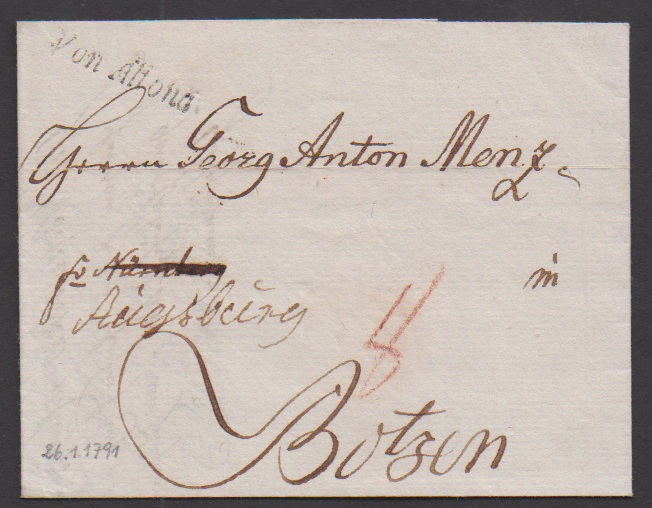 Von Altona
Herrn Georg Anton Menz
fo Nürnberg in
Augsburg
Botzen
26.1.1791